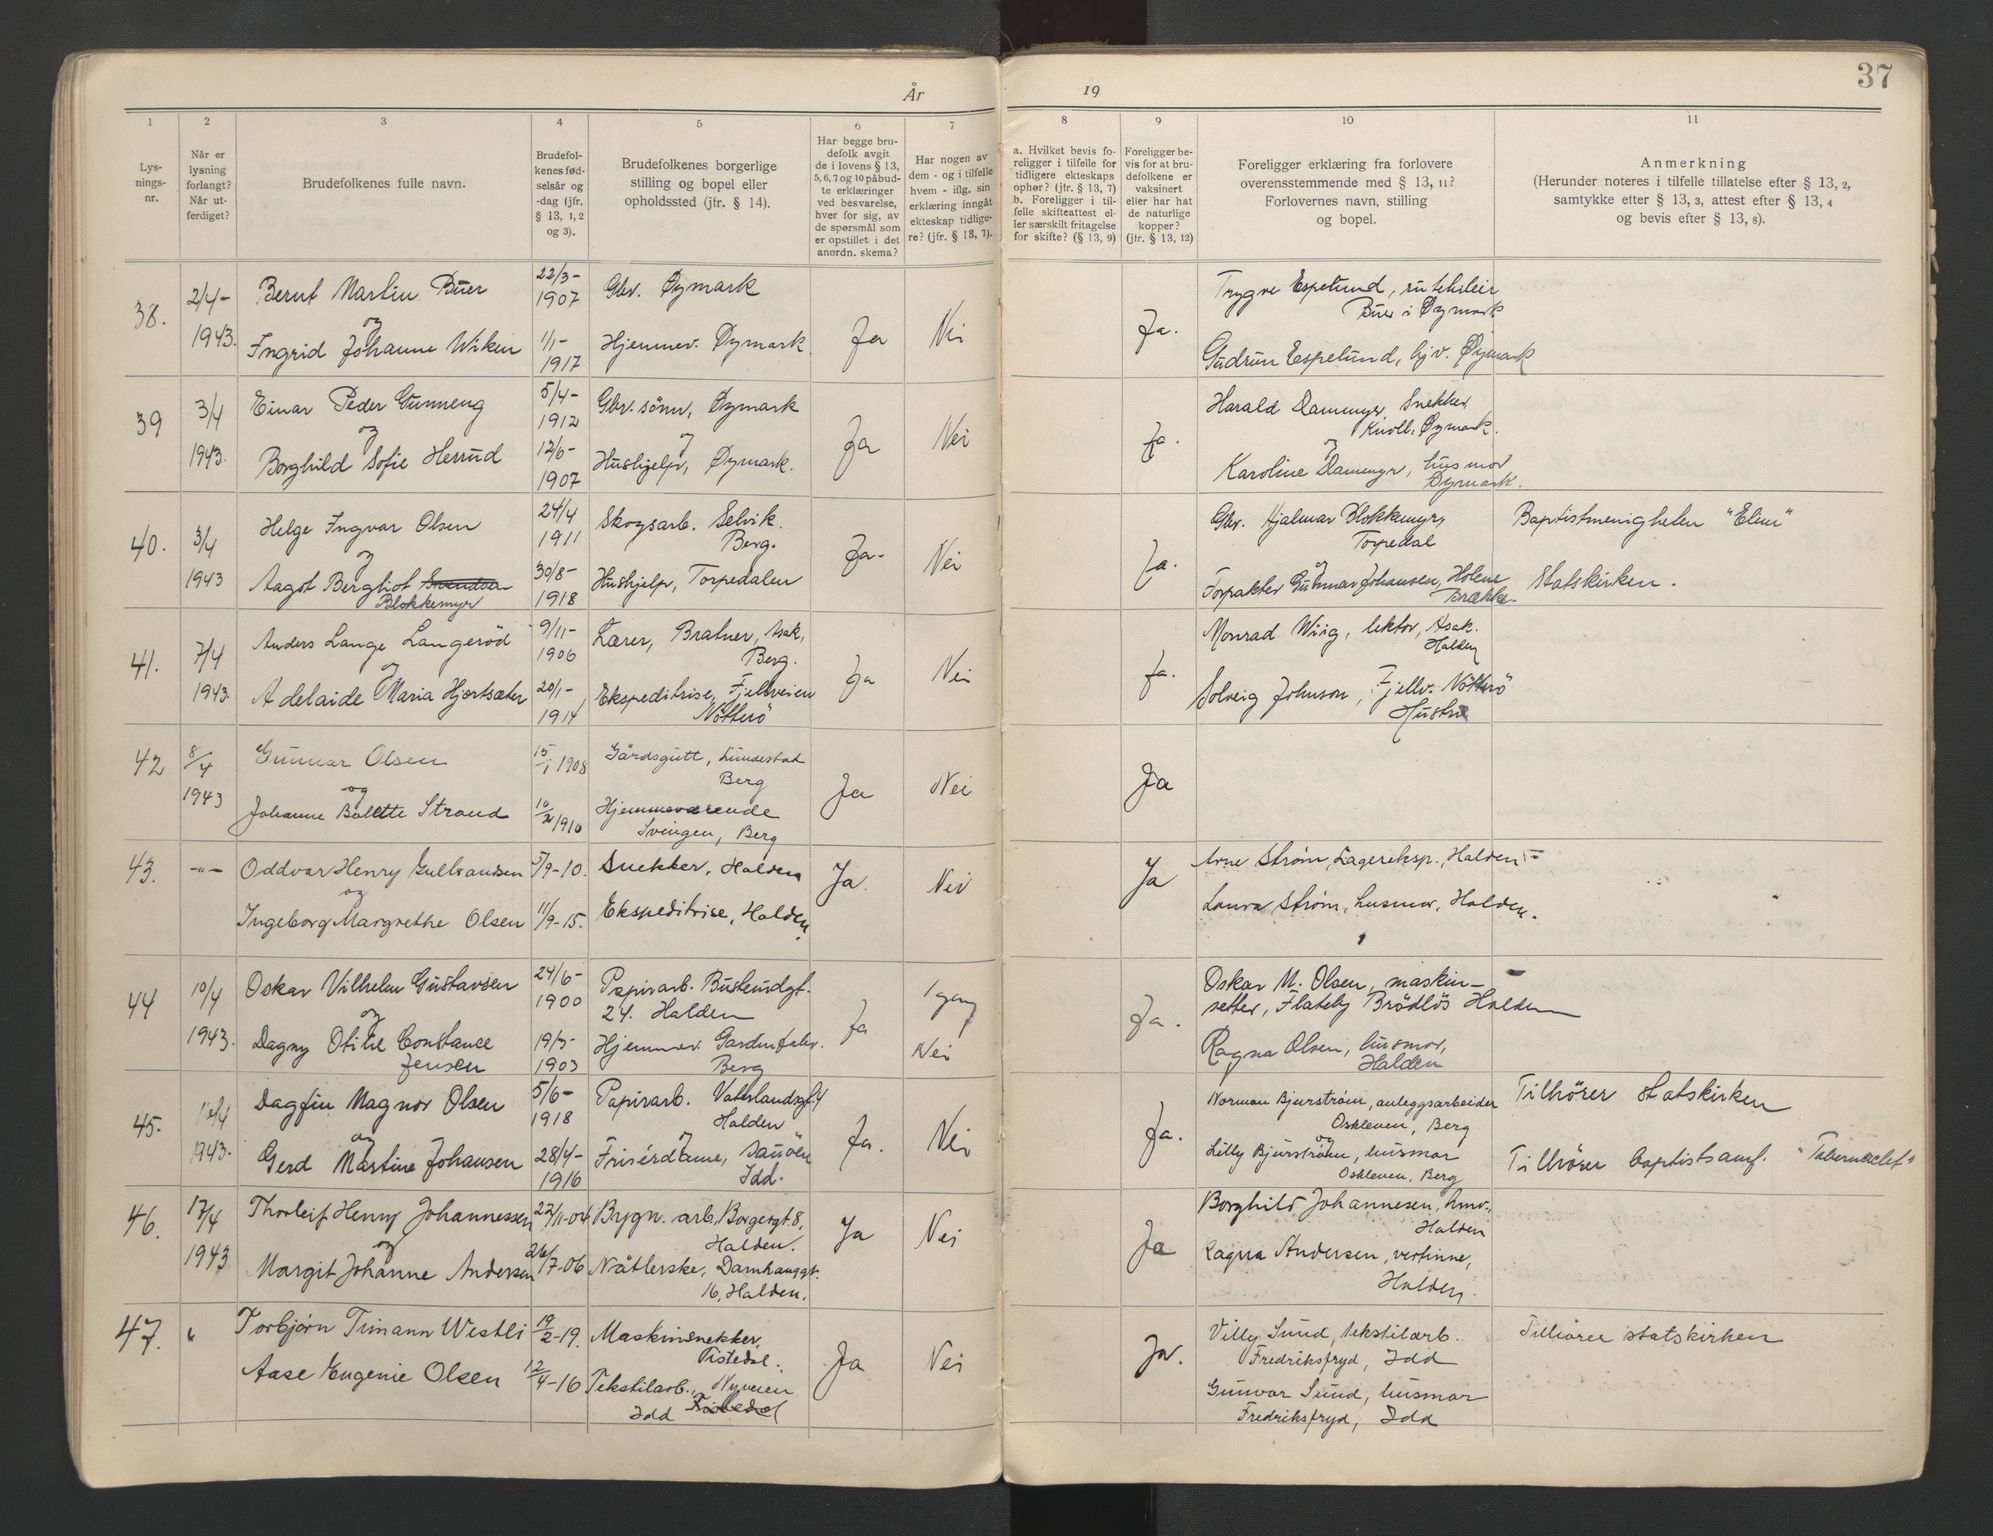 År
19
37
1
2
3
4
5
6
7
8
9
10
11
Lys-
nings-
nr.
Når er
lysning
forlangt?
Når ut-
ferdiget?
Brudefolkenes fulle navn.
Brudefol-
kenes fød-
selsår og
-dag (jfr.
§ 13, 1, 2
og 3).
Brudefolkenes borgerlige
stilling og bopel eller
opholdssted (jfr. § 14).
Har begge bru-
defolk avgit
de i lovens § 13,
5, 6, 7 og 10 påbud-
te erklæringer
ved besvarelse,
hver for sig, av
de spørsmål som
er opstillet i det
anordn. skema?
Har nogen av
dem - og i tilfelle
hvem - iflg. sin
erklæring inngåt
ekteskap tidlige-
re? (jfr. § 13, 7).
a. Hvilket bevis fo-
religger i tilfelle for
tidligere ekteskaps
ophør? (jfr. § 13, 7)
b. Foreligger i til-
felle skifteattest el-
ler særskilt fritagelse
for skifte? (§ 13, 9)
Foreligger be-
vis for at bru-
defolkene er
vaksinert
eller har hat
de naturlige
kopper?
(jfr. § 13, 12)
Foreligger erklæring fra forlovere
overensstemmende med § 13, 11?
Forlovernes navn, stilling
og bopel.
Anmerkning
(Herunder noteres i tilfelle tillatelse efter § 13, 2,
samtykke efter § 13, 3, attest efter § 13, 4
og bevis efter § 13, 8).
38.
2/4-
1943.
Bernt Martin Buer
og
Ingrid Johanne Wiken
22/3-
1907
1/1-
1917
Gbr. Øymark
Hjemmev. Øymark.
Ja
Nei
Ja.
Trygve Espelund,
Buer i Øymark
Gudrun Espelund, hjv. Øymark
39
3/4
1943.
Einar Peder Gunneng
og
Borghild Sofie Herrud
5/4-
1912
12/6-
1907
Gbr. sönn, Øymark
og
Hushjelp, Øymark.
Ja
Nei
Ja.
Harald Dammyr, Snekker
Knoll, Øymark.
og
Karoline Dammyr, husmor
Øymark.
40.
3/4
1943
Helge Ingvar Olsen
og
Aagot Bergliot Svendsen
Blokkemyr
24/4
1911
30/8-
1918
Skogsarb. Selvik.
Berg.
Hushjelp, Torpedalen
Ja.
Nei
Ja.
Gbr. Hjalmar Blokkemyr,
Torpedal
og
Forpakter Gunnar Johansen, Holene
Brække.
Baptistmenigheten "Elim"
Statskirken.
41.
7/4
1943.
Anders Lange Langeröd
og
Adelaide Maria Hjertsæter
9/11-
1906
20/1-
1914
Lærer, Bratner, Asak,
Berg.
Ekspeditrise, Fjellveien
Nötterö
Ja
Nei
Ja.
Monrad Wiig, lektor, Asak.
Halden
Solveig Johnson, Fjellv. Nötterö
Hustru
42
8/4
1943
Gunnar Olsen
og
Johanne Bolette Strand
15/1 1908
10/2 1910
Gårdsgutt, Lundestad
Berg
Hjemmeværende
Svingen, Berg
Ja
Nei
Ja
43.
-"-
Oddvar Henry Gulbrandsen
og
Ingeborg Margrethe Olsen
5/9-10.
11/9-15.
Snekker, Halden
Ekspeditrise, Halden.
Ja.
Nei
Ja
Arne Strøm, Lagereksp., Halden
Laura Strøm, husmor, Halden.
44
10/4
1943.
Oskar Vilhelm Gustavsen
og
Dagny Otilie Constance
Jensen
24/6-
1900
19/3-
1903
Papirarb. Busterudgt.
24. Halden
Hjemmev. Gardinfabr.
Berg
Ja
1 gang
Nei
Ja.
Oskar M. Olsen, maskin-
setter, Flateby Brödløs Halden
Ragna Olsen, husmor,
Halden
45.
10/4
1943.
Dagfin Magnor Olsen
og
Gerd Martine Johansen
5/6-
1918
28/4-
1916
Papirarb. Vaterlandsgt. 4
Halden
og
Frisérdame, Sauöen
Idd.
Ja.
Nei
Ja.
Norman Bjurstrøm, anleggsarbeider
Oskleven, Berg
og
Lilly Bjurstrøm, husmor
Oskleven, Berg
Tilhörer Statskirken
Tilhörer baptistsamf. "Tabernaclet"
46.
17/4
1943
Thorleif Henry Johannessen
og
Margit Johanne Andersen
22/11-04
26/7-06
Bygn. arb, Borgergt. 8,
Halden.
Nåtlerske, Damhauggt.
16, Halden.
Ja
Nei
Ja
Borghild Johannesen, hmv.,
Halden
Ragna Andersen, vertinne,
Halden.
47.
"
Torbjørn Timann Westli
Aase Eugenie Olsen
19/2-19.
12/4-16
Maskinsnekker,
Tistedal.
Tekstilarb., Nyveien
Idd Tistedal
Ja
Nei
Ja.
Villy Lund, tekstilarb.
Fredriksfryd, Idd
Gunvor Lund, husmor
Fredriksfryd, Idd
Tilhører statskirken